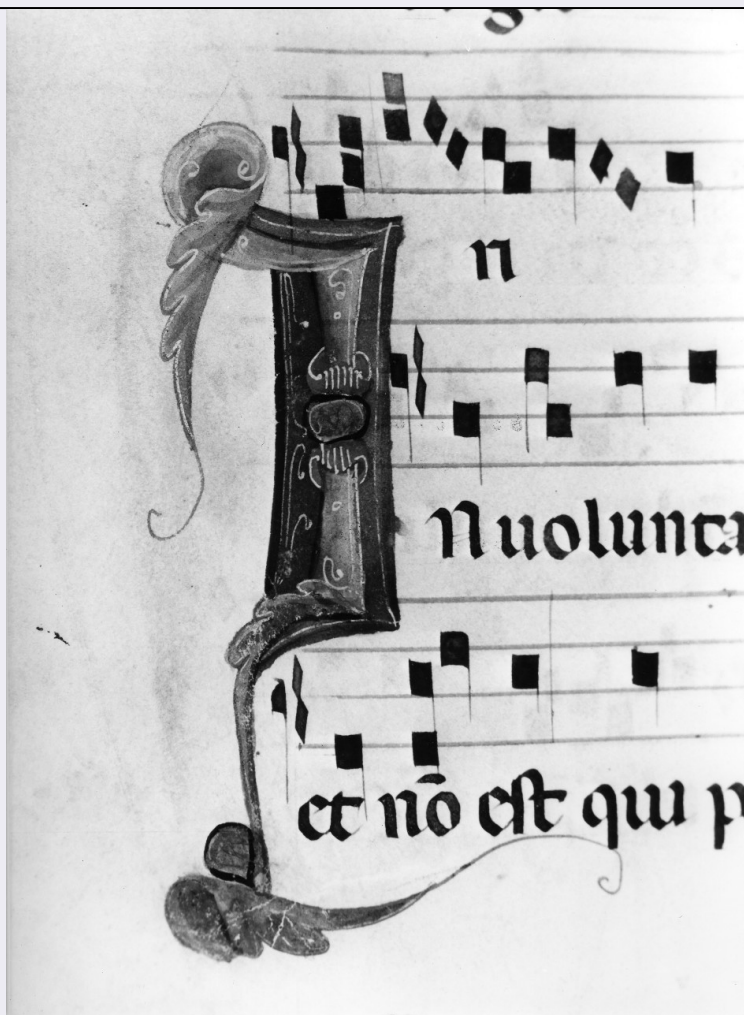 I n
N uolunta
et nō est qui p